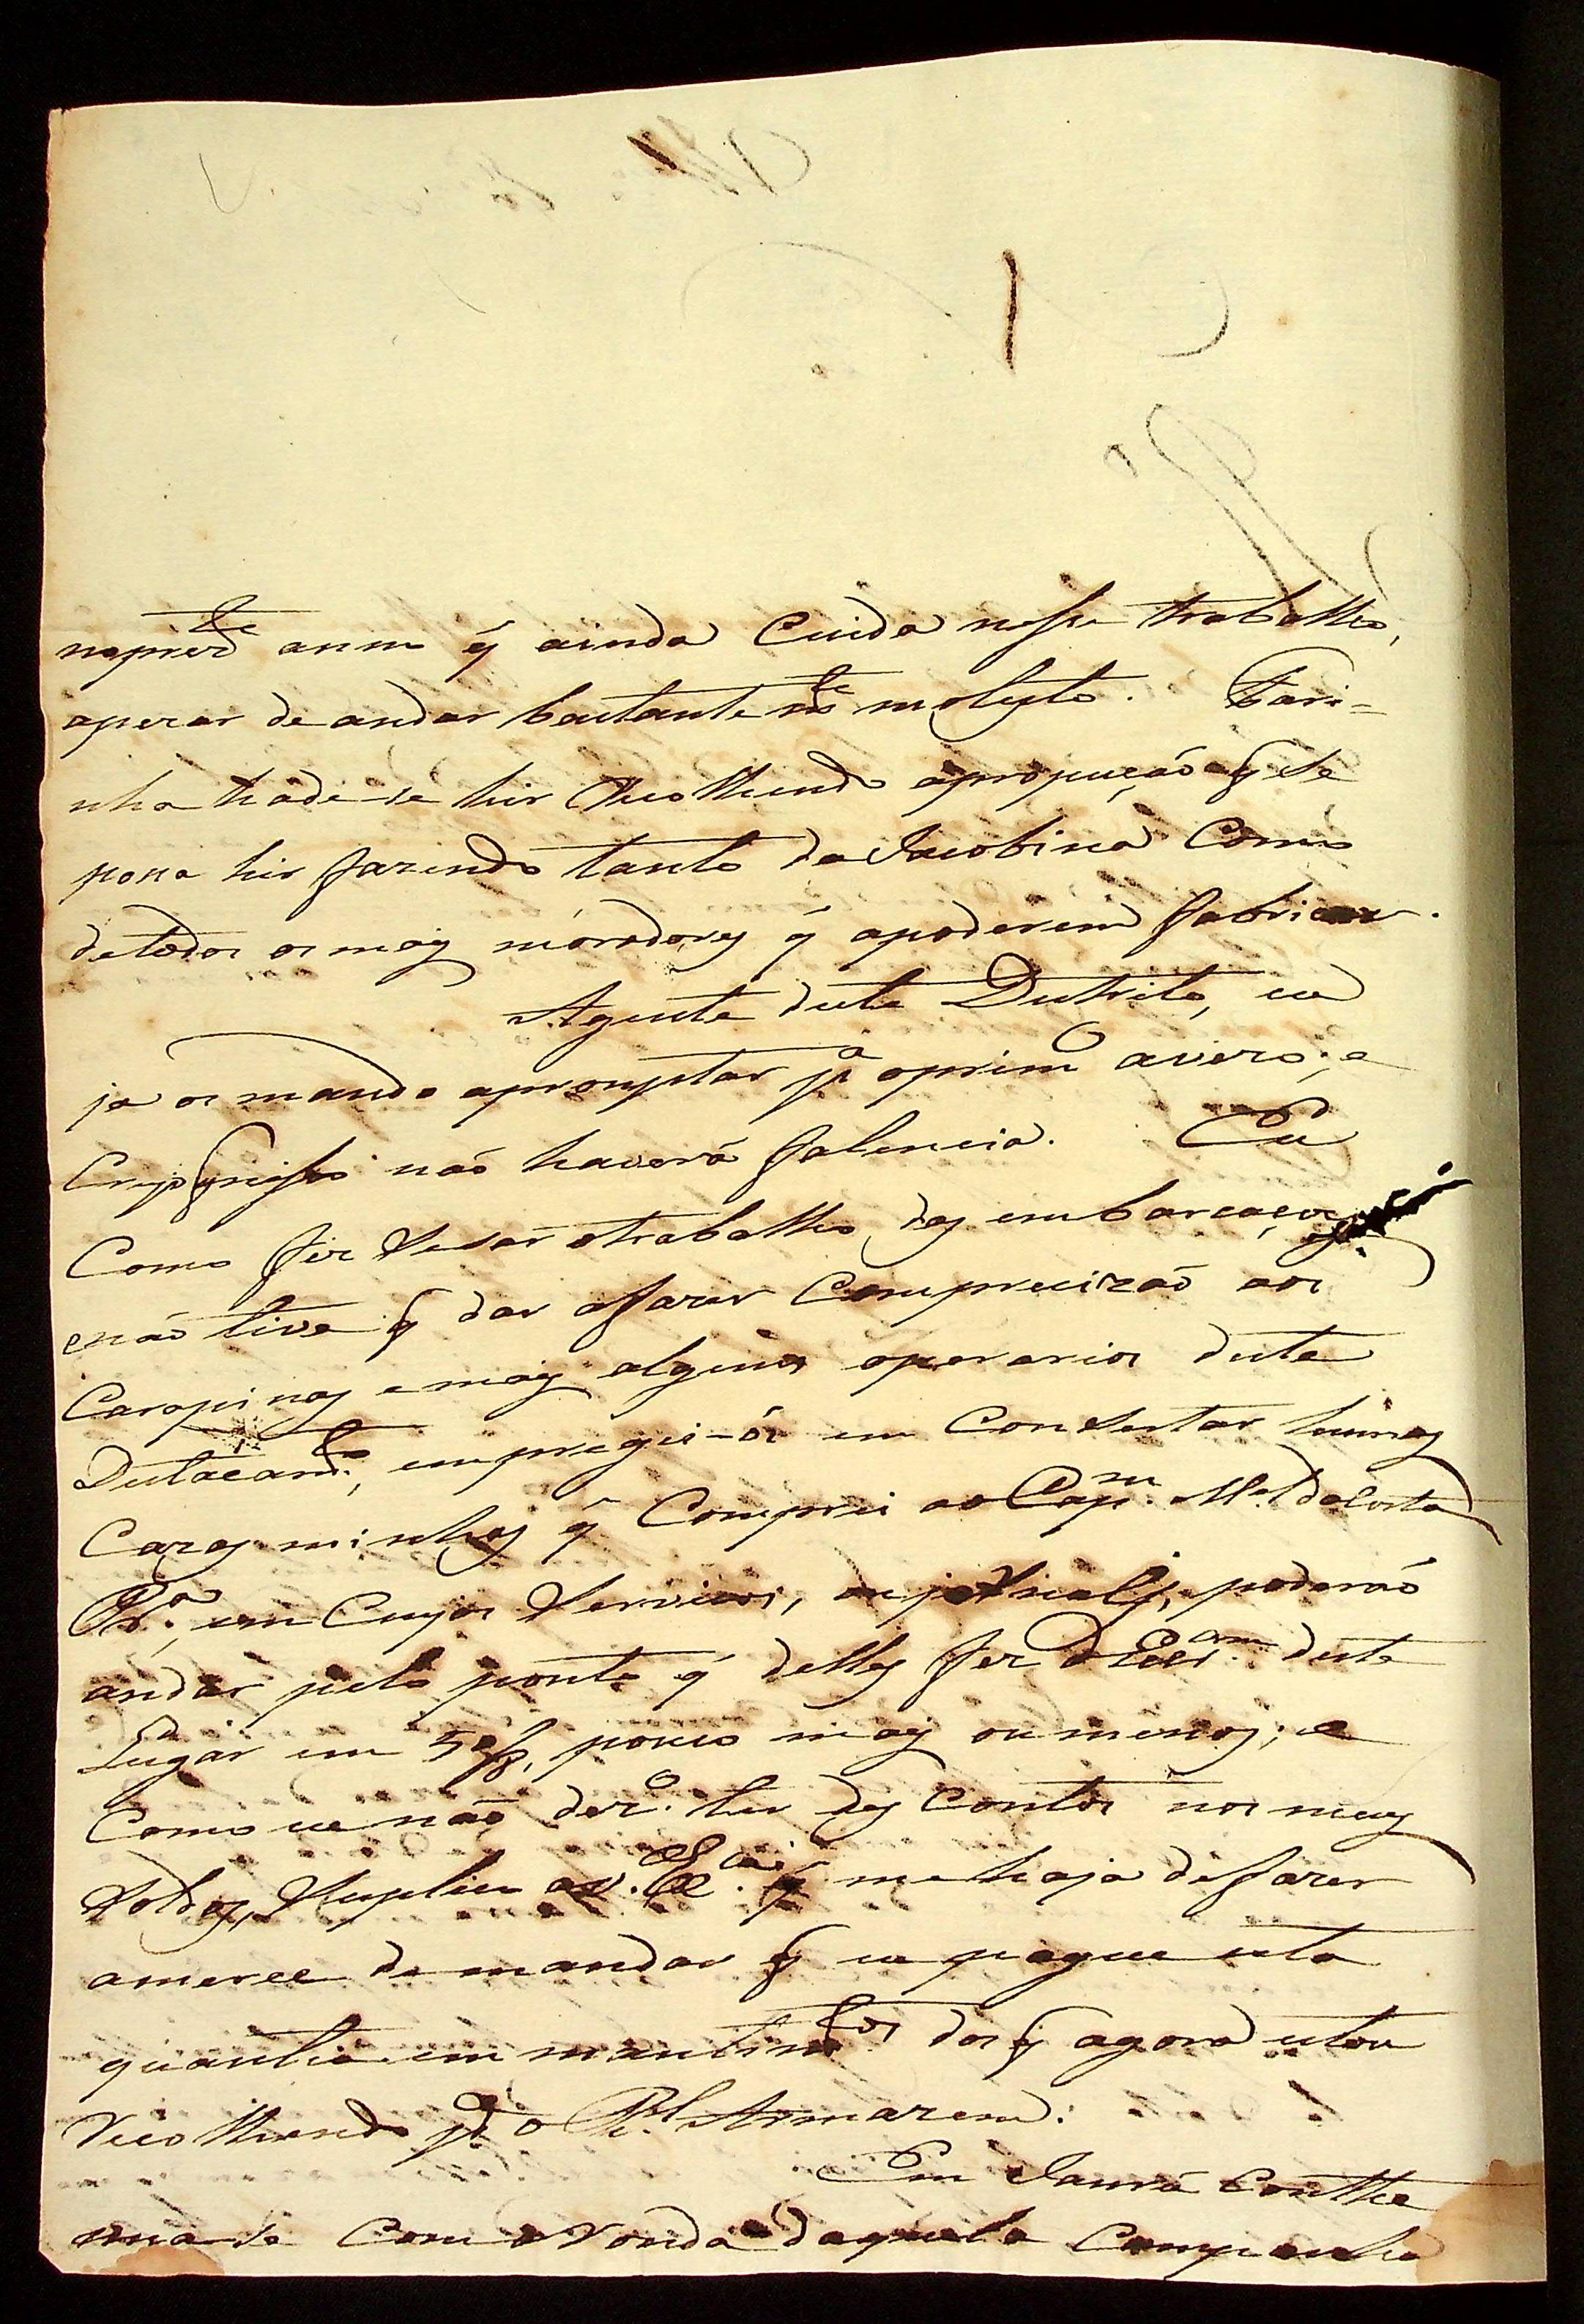 anno q̃ ainda Cuida nesse trabalho,
apezar de andar bastante m.to molesto. Fari=
nha hade-se hir recolhendo aproporçaõ q̃ Se
possa hir fazendo tanto da Jacobina Como
detodos os mais moradores q̃ apoderem fabricar.
Agente deste Destrito, eu
ja os mando apromptar p.a oprim.o avizo; e
q̃ nisso naõ haverá falencia. Eu
Como fiz Sesar otrabalho das embarcaçoes
enaõ tive q̃ dar afazer Comprecizaõ aos
Carapinas emais alguns operarios deste
Destacam.to, empreguei-os em Consertar humas
Cazas minhas q̃ Comprei ao Cap.m M.el daCosta
P.ra, em Cujos Servicos, poderaõ
andar pelo ponto q̃ delles fez o deste
Lugar em poucо mais ou menos; e
Como eu naõ dez.o ter des Contos nos meus
Soldos, Suplico aV. Ex.cia q̃ me haja defazer
amerce de mandar q̃ eu pague esta
quantia em mantim.tos dos q̃ agora estou
recolhendo p.a o R.l Armazem.
Em Jaurú
se Com a ronda daquela Companha